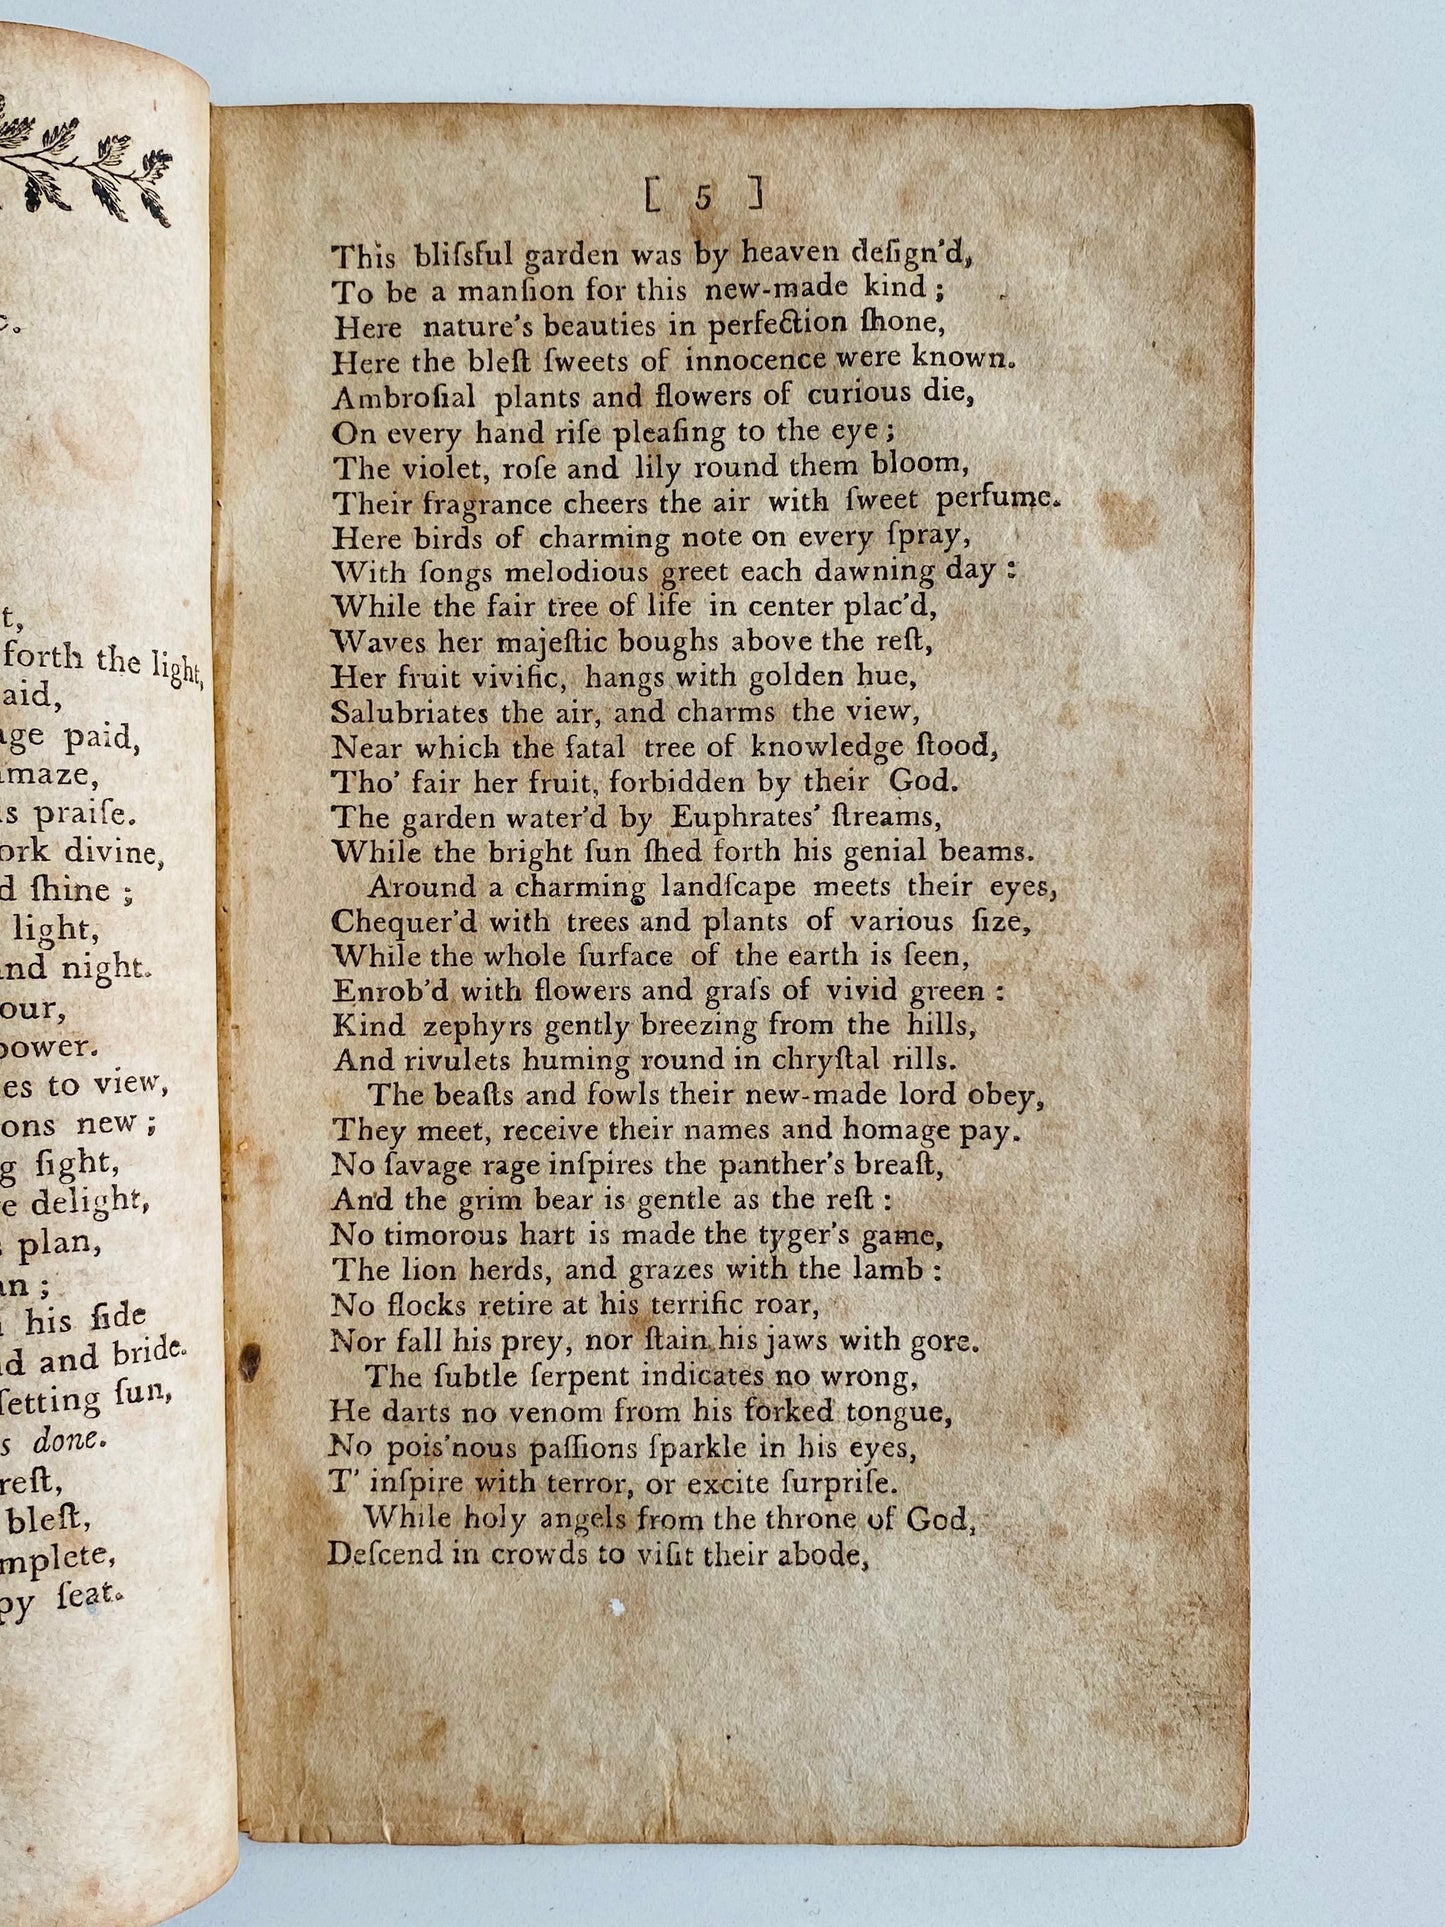 c.
t,
forth the light,
aid,
age paid,
amaze,
s praiſe.
ork divine,
d ſhine ;
light,
and night.
our,
power.
es to view,
ons new ;
g ſight,
e delight,
s plan,
an ;
his ſide
d and bride.
ſetting ſun,
s done.
reſt,
bleſt,
mplete,
py ſeat.
[ 5 ]
This bliſsful garden was by heaven deſign'd,
To be a manſion for this new-made kind ;
Here nature's beauties in perfection ſhone,
Here the bleſt ſweets of innocence were known.
Ambroſial plants and flowers of curious die,
On every hand riſe pleaſing to the eye ;
The violet, roſe and lily round them bloom,
Their fragrance cheers the air with ſweet perfume.
Here birds of charming note on every ſpray,
With ſongs melodious greet each dawning day :
While the fair tree of life in center plac'd,
Waves her majeſtic boughs above the reſt,
Her fruit vivific, hangs with golden hue,
Salubriates the air, and charms the view,
Near which the fatal tree of knowledge ſtood,
Tho' fair her fruit, forbidden by their God.
The garden water'd by Euphrates' ſtreams,
While the bright ſun ſhed forth his genial beams.
Around a charming landſcape meets their eyes,
Chequer'd with trees and plants of various ſize,
While the whole ſurface of the earth is ſeen,
Enrob'd with flowers and graſs of vivid green :
Kind zephyrs gently breezing from the hills,
And rivulets huming round in chryſtal rills.
The beaſts and fowls their new-made lord obey,
They meet, receive their names and homage pay.
No ſavage rage inſpires the panther's breaſt,
And the grim bear is gentle as the reſt :
No timorous hart is made the tyger's game,
The lion herds, and grazes with the lamb :
No flocks retire at his terrific roar,
Nor fall his prey, nor ſtain his jaws with gore.
The ſubtle ſerpent indicates no wrong,
He darts no venom from his forked tongue,
No pois'nous paſſions ſparkle in his eyes,
T' inſpire with terror, or excite ſurpriſe.
While holy angels from the throne of God,
Deſcend in crowds to viſit their abode,